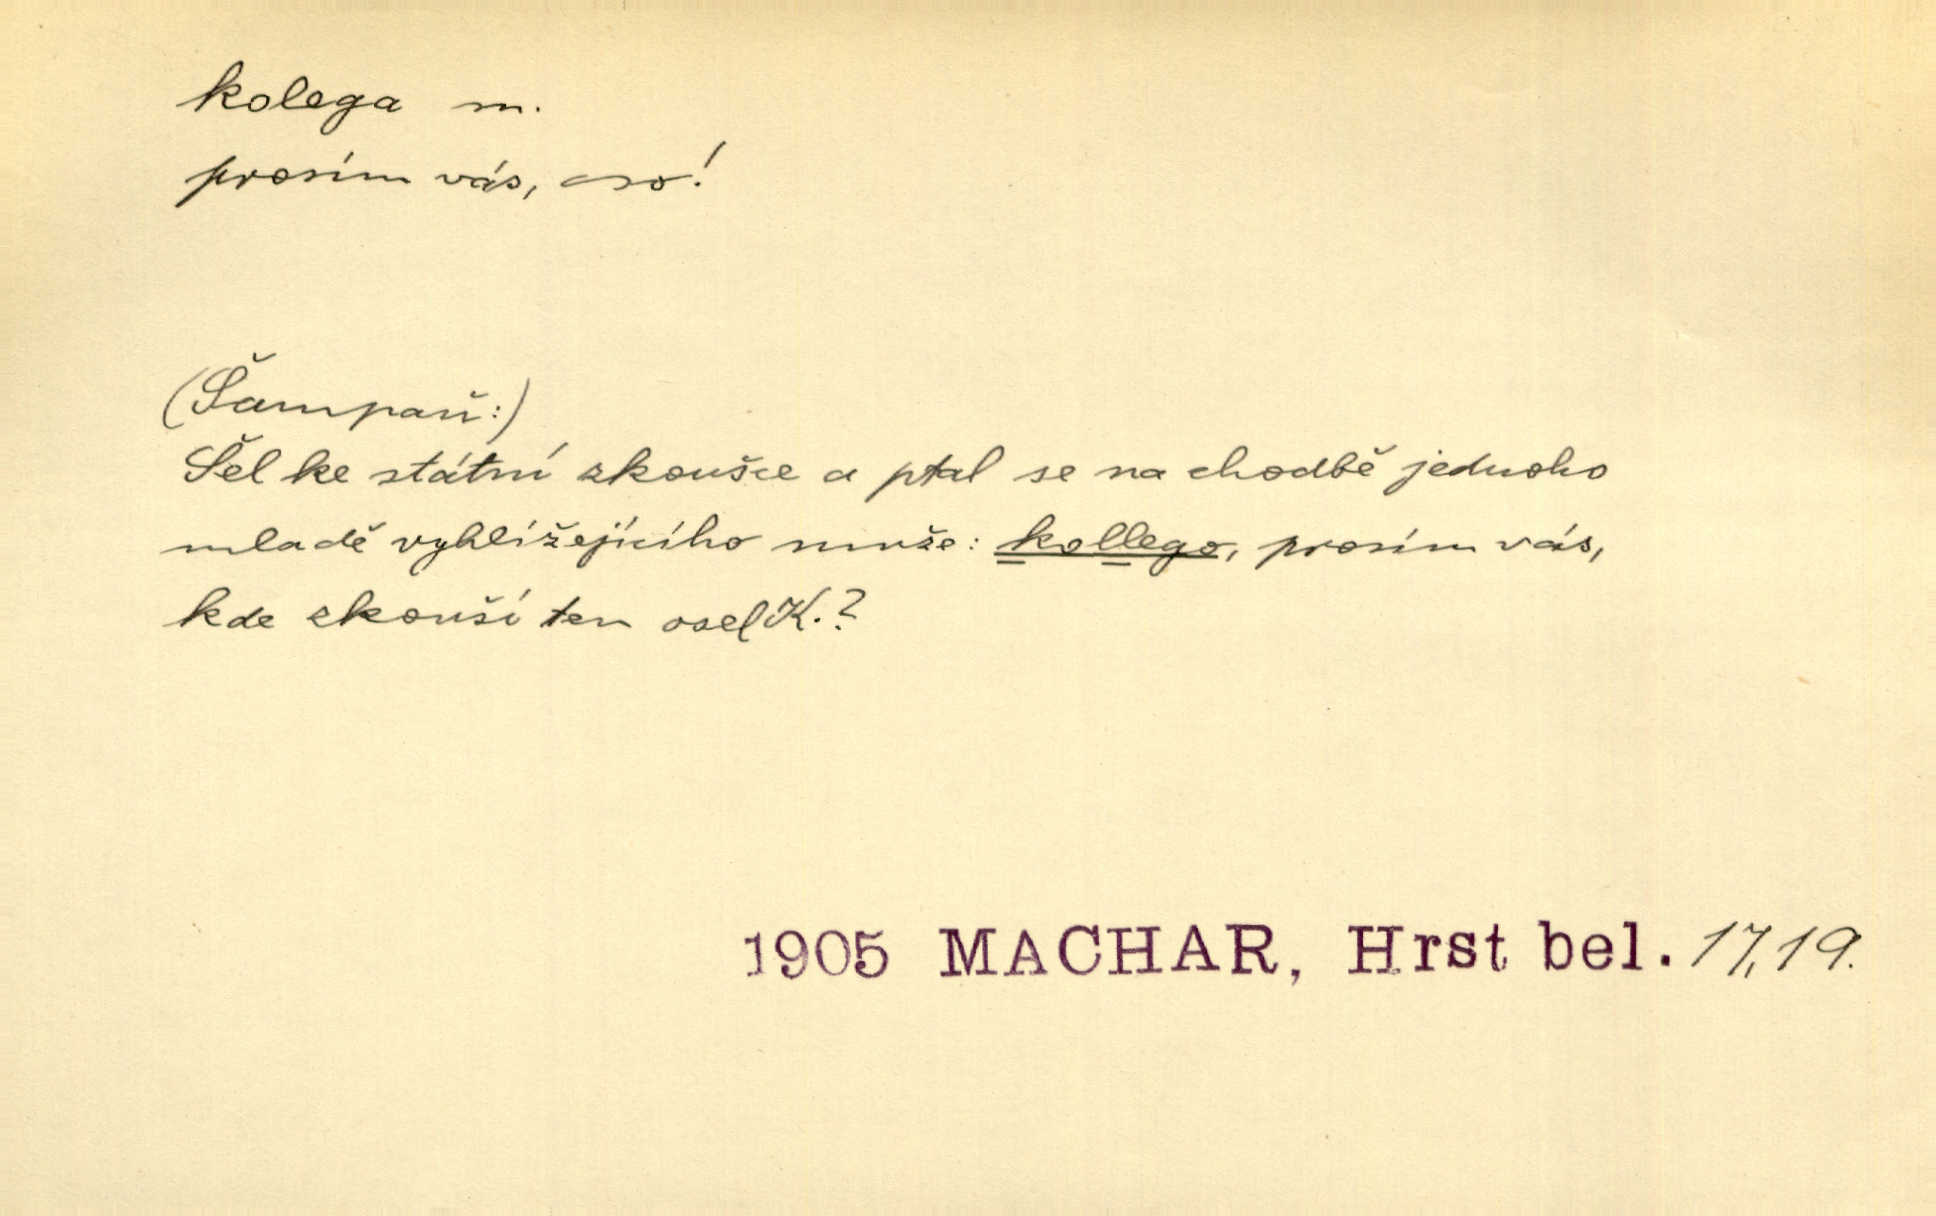 kolega m.
prosím vás, c~o!
(Šampaň:)
Šel ke státní zkoušce a ptal se na chodbě jednoho
mladě vyhlížejícího muže: kollego, prosím vás,
kde zkouší ten osel K.?
1905 MACHAR, Hrst bel. 17, 19.